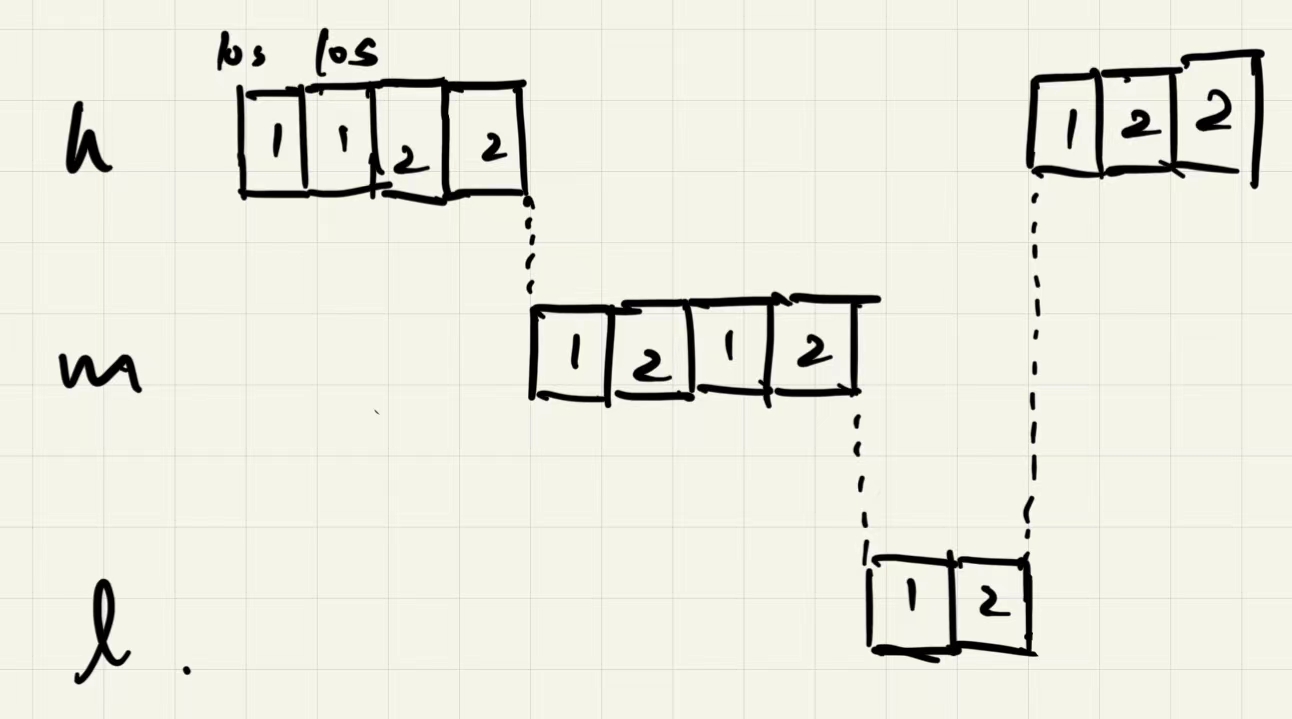 los los
h 1 1 2 2 1 2 2
m 1 2 1 2
l . 1 2